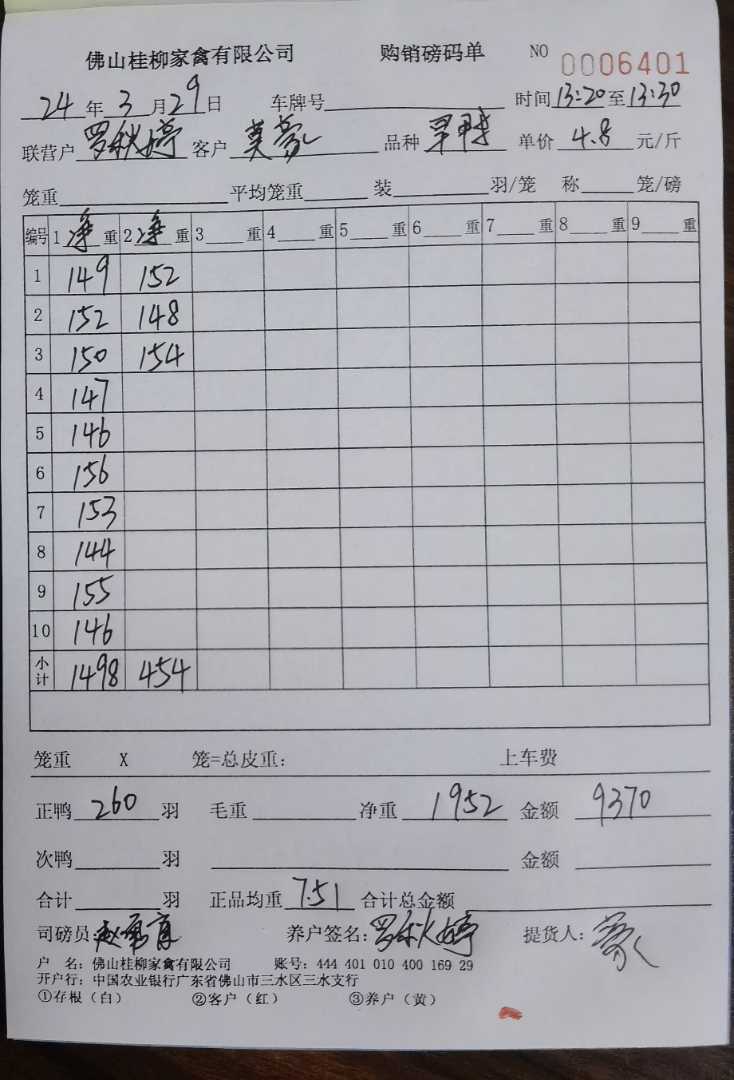 佛山桂柳家禽有限公司 购销磅码单 NO 0006401
24年3月29日 车牌号 时间13:20至13:30
联营户罗秋婷 客户莫豪 品种 单价4.8元/斤
笼重 平均笼重 装 羽/笼 称 笼/磅
编号 1净重 2净重 3 重 4 重 5 重 6 重 7 重 8 重 9 重
1 149 152
2 152 148
3 150 154
4 147
5 146
6 156
7 153
8 144
9 155
10 146
小计 1498 454
笼重 X 笼=总皮重: 上车费
正鸭260羽 毛重 净重1952 金额9370
次鸭 羽 金额
合计 羽 正品均重7.51 合计总金额
司磅员: 养户签名:罗秋婷 提货人:豪
户 名:佛山桂柳家禽有限公司 账号:444 401 010 400 169 29
开户行:中国农业银行广东省佛山市三水区三水支行
①存根(白) ②客户(红) ③养户(黄)